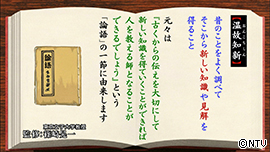 【温故知新】
昔のことをよく調べて
そこから新しい知識や見解を
得ること
元々は
「古くからの伝えを大切にして
新しい知識を得ていくことができれば
人を教える師となることが
できるでしょう」という
「論語」の一節に由来します
論語
©NTV